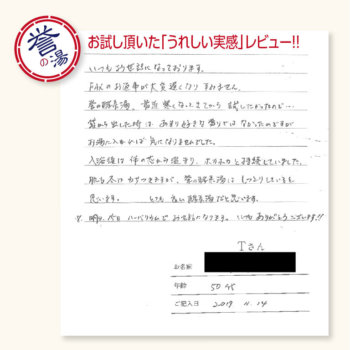 誉の湯
お試し頂いた「うれしい実感」レビュー!!
いつもお世話になっております。
FAXのお返事が大変遅くなりすみません。
誉の酵素湯、最近寒くなってきてから試したかったので…
袋から出した時はあまり好きな香りではなかったのですが
お湯に入れれば気になりませんでした。
入浴後は体の芯から温まり、ポカポカと持続していました。
肌も冬はカサつきますが、誉の酵素湯はしっとりしていると
思います。 とても良い酵素湯だと思います。
いつもありがとうございます!!
Tさん
お名前
年齢 50才
ご記入日 2017 11.14